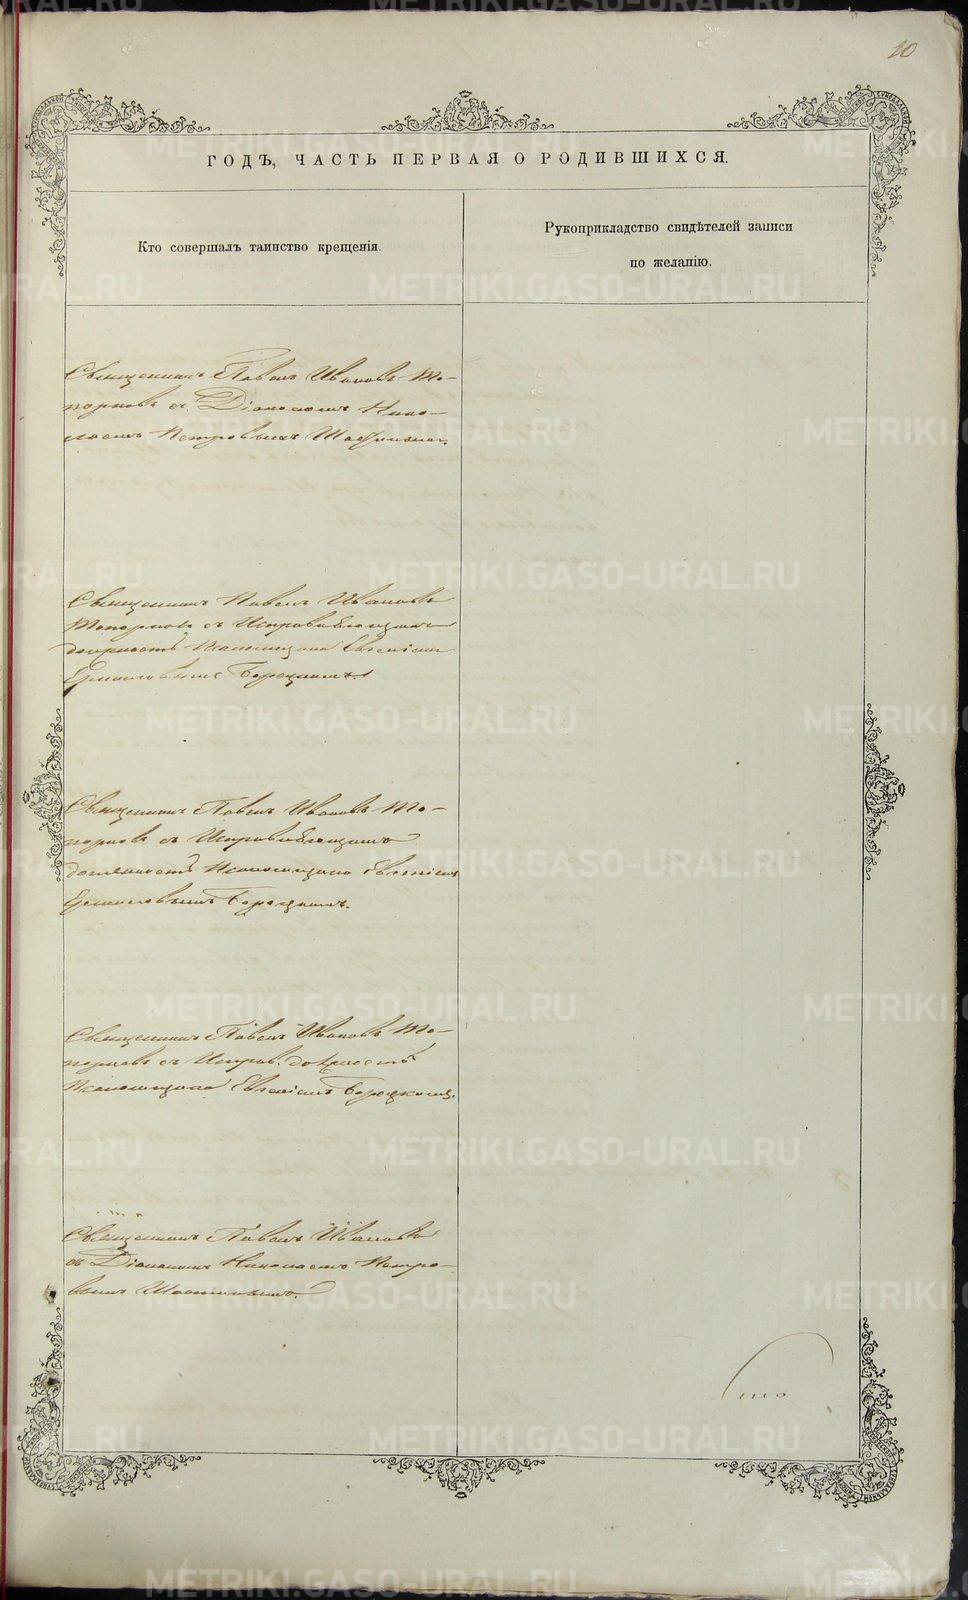 10
ГОДЪ, ЧАСТЬ ПЕРВАЯ О РОДИВШИХСЯ.
Кто совершалъ таинство крещенія.
Рукоприкладство свидѣтелей записи
по желанію.
Священникъ Павелъ Ивановъ То-
порковъ съ Діакономъ Нико-
лаемъ Петровымъ
Священникъ Павелъ Ивановъ
Топорковъ съ Исправляющимъ
должность Псаломщика Евгеніемъ
Ермиловымъ Борецкимъ
Священникъ Павелъ Ивановъ То-
порковъ съ Исправляющимъ
должность Псаломщика Евгеніемъ
Ермиловымъ Борецкимъ.
Священникъ Павелъ Ивановъ То-
порковъ съ Исправ. должность
Псаломщика Евгеніемъ Борецкимъ.
Священникъ Павелъ Ивановъ
съ Діакономъ Николаемъ Петро-
вымъ
METRIKI.GASO-URAL.RU